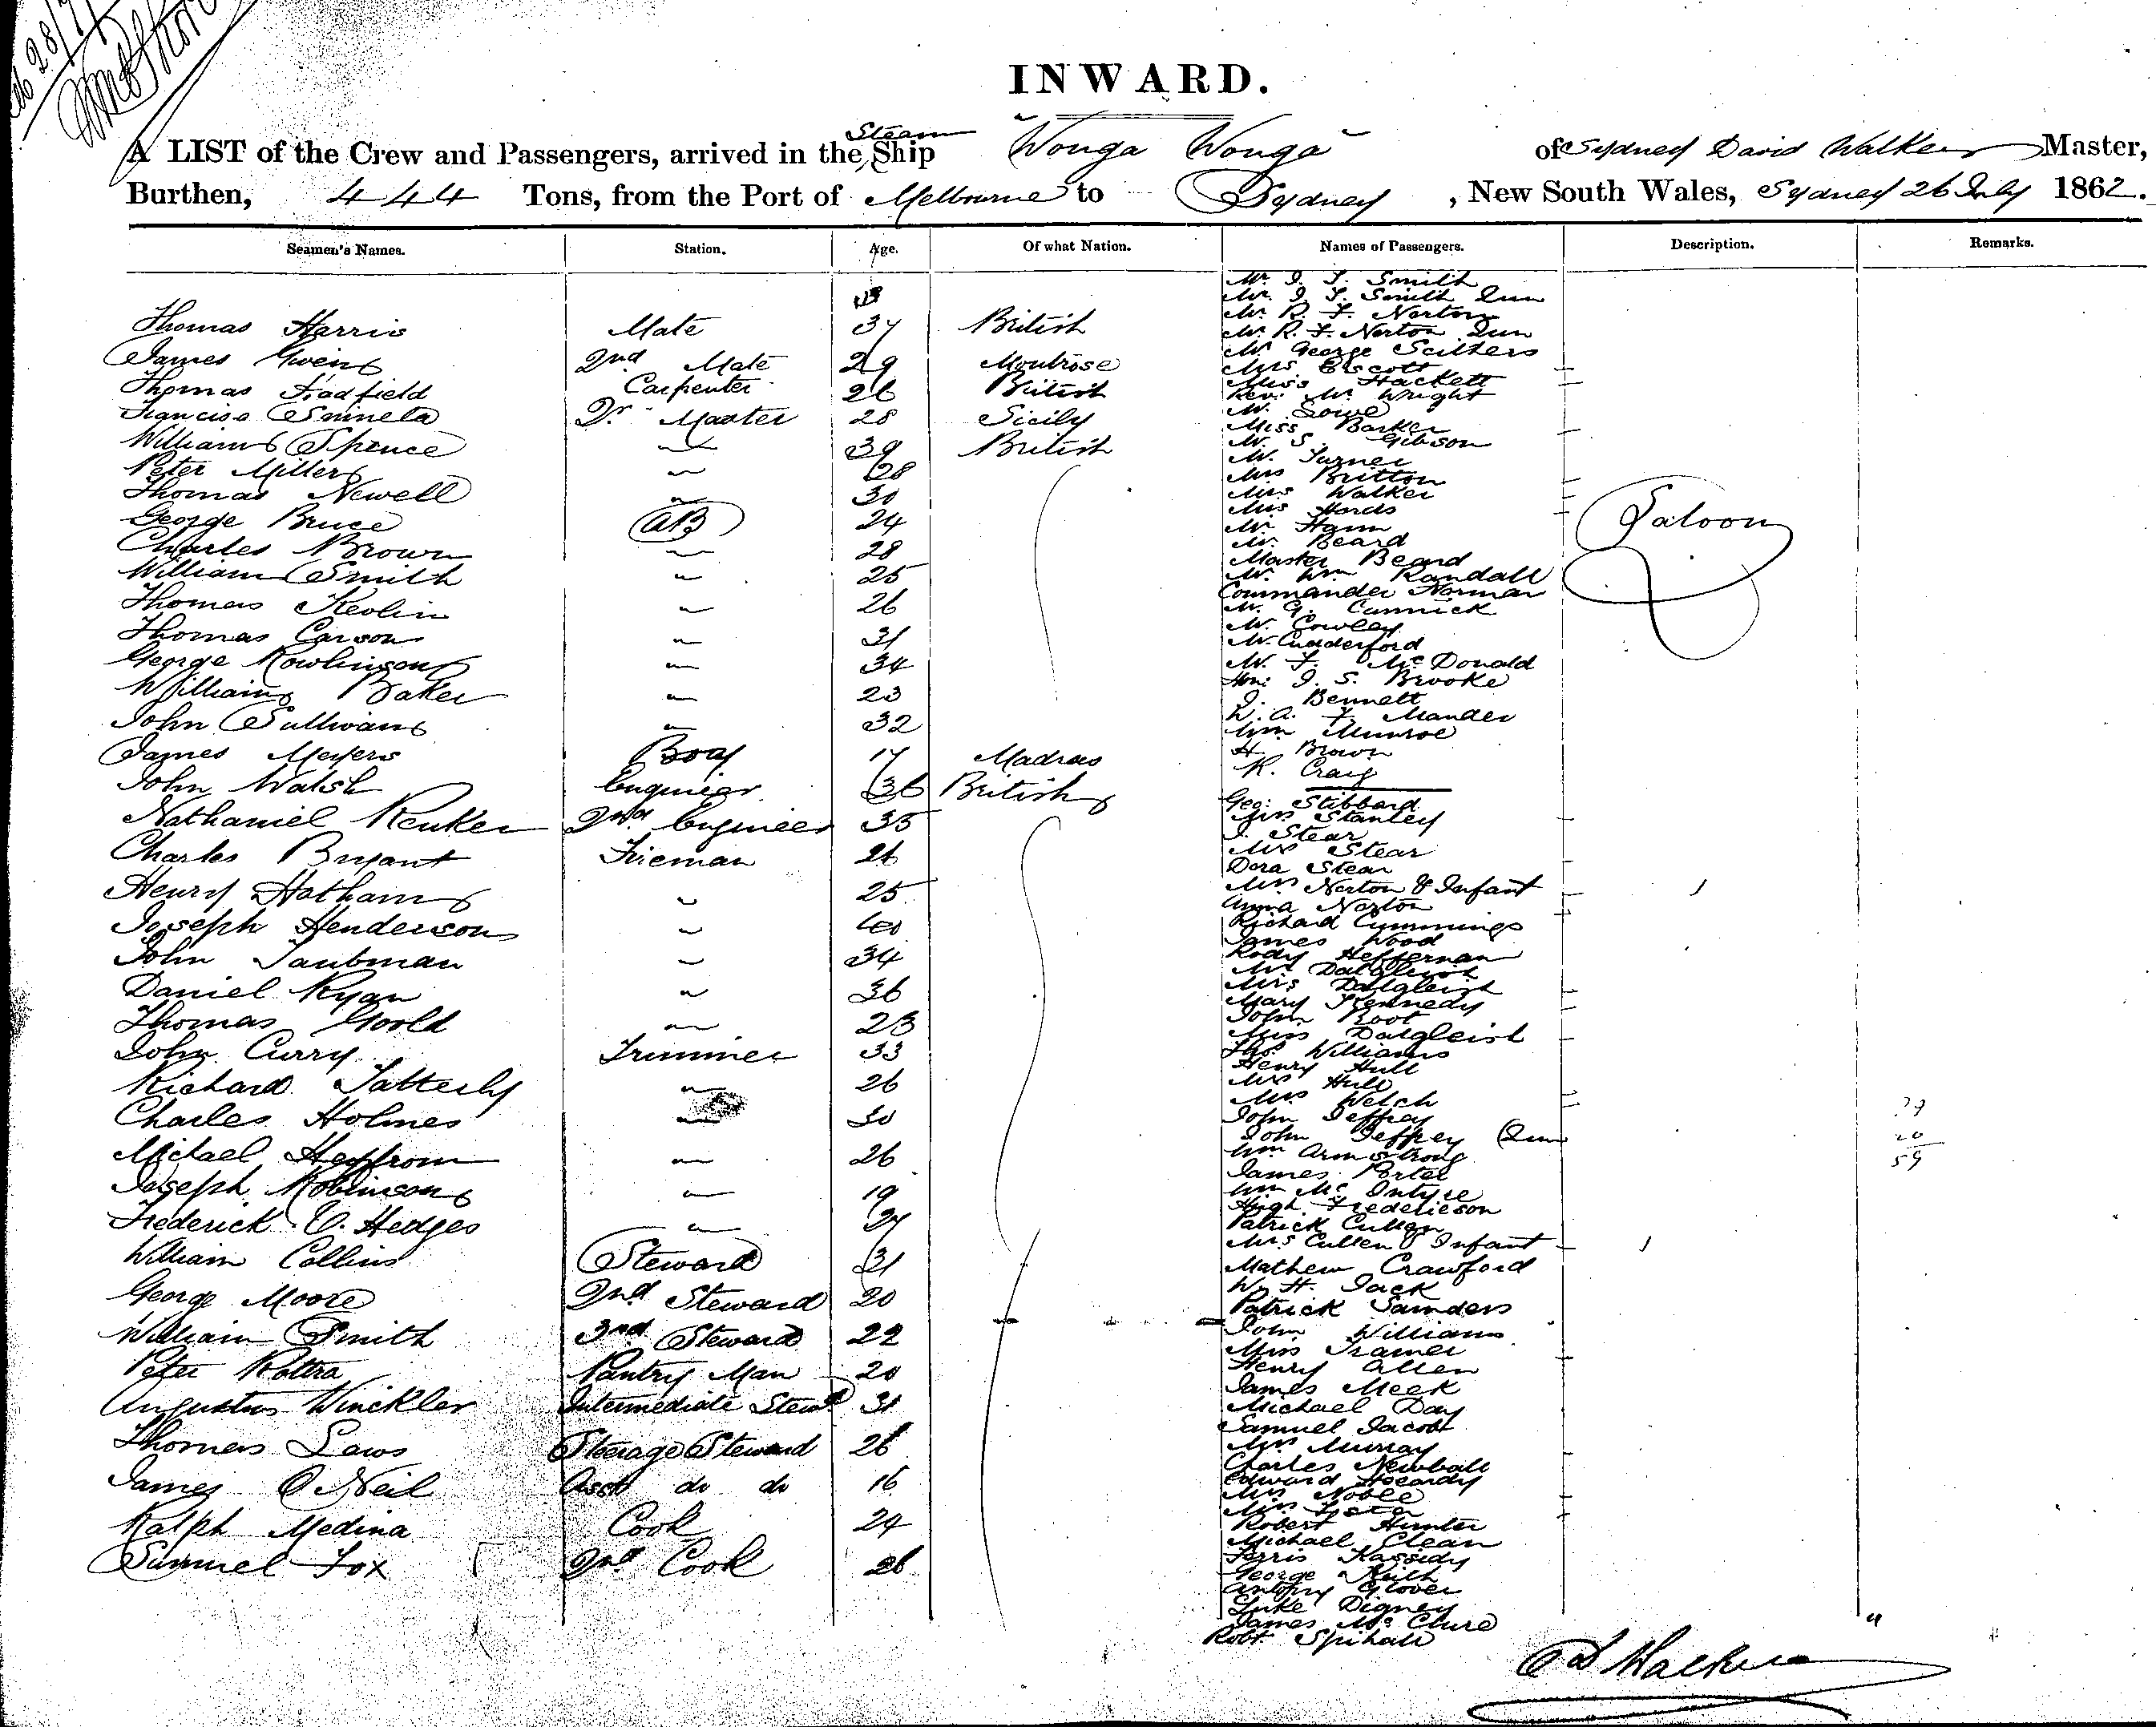 INWARD.
A LIST of the Crew and Passengers, arrived in the Steam Ship Wonga Wonga of Sydney David Walker Master,
Burthen, 444 Tons, from the Port of Melbourne to Sydney, New South Wales, Sydney 26 July 1862.
Seamen's Names. Station. Age. Of what Nation. Names of Passengers. Description. Remarks.
Thomas Harris Mate 37 British
James 2nd Mate 29 Montrose
Thomas Fradfield Carpenter 26 British
Qr Master 28 Sicily
William Spence " 39 British
Peter Miller " 28
Thomas Newell " 30
George Bruce AB 24
Charles Brown " 28
William Smith " 25
Thomas " 26
Thomas Carson " 31
George Rowlinson " 34
William Baker " 23
John Sullivan " 32
James Meyers Boy 17 Madras
John Walsh Engineer 36 British
Nathaniel 2nd Engineer 35
Charles Bryant Fireman 26
Henry Hotham " 25
Joseph Henderson " 40
John Taubman " 34
Daniel Ryan " 36
Thomas Goold " 23
John Curry Trimmer 33
Richard Tatterly " 26
Charles Holmes " 30
Michael " 26
Joseph Robinson " 19
Frederick V. Hedges " 27
William Collins Steward 31
George Moore 2nd Steward 20
William Smith 3rd Steward 22
Peter Pantry Man 20
Augustus Winckler Intermediate Stewd 31
Thomas Laws Steerage Steward 26
James O'Neil Asst do do 16
Ralph Medina Cook 24
Samuel Fox 2nd Cook 26
Mr. J. T. Smith
Mr. J. T. Smith Jun
Mr. R. F. Norton
Mr. R. F. Norton Jun
Mr. George
Mrs Elscott
Miss Hackett
Rev. Mr. Wright
Mr. Lowe
Miss Barker
Mr. S. Gibson
Mr. Turner
Mrs Britton
Mrs Walker
Mrs Hords
Mr Hann
Mr. Beard
Master Beard
Mr. Wm Randall
Commander Norman
Mr. G. Cannick
Mr. Cowley
Mr. Cudderford
Mr. F. McDonald
Hon: J. S. Brooke
J. Bennett
W. A. F. Mander
Wm Munroe
H. Brown
R. Craig
Saloon
Geo: Stibbard
Mrs Stanley
J. Stear
Mrs Stear
Dora Stear
Mrs Norton & Infant 1
Anna Norton
Richard Cummings
James Wood
Rody Heffernan
Mr Dalgleish
Mrs Dalgleish
Mary Kennedy
John Root
Miss Dalgleish
Thos. Williams
Henry Hull
Mrs Hull
Mrs Welch
John Jeffrey
John Jeffrey Jun
Wm Armstrong
James Porter
Wm McIntyre
Hugh Frederieson
Patrick Cullen
Mrs Cullen & Infant 1
Mathew Crawford
W. H. Jack
Patrick Samders
John Williams
Miss Tramer
Henry Allen
James Meek
Michael Day
Samuel Jacobs
Mrs Murray
Charles Newball
Edward
Mrs Noble
Miss
Robert Hunter
Michael Clean
Ferris Kassidy
George Keith
Antony Glover
Luke Digney
James McClure
Robt. Spihall
20
59
D Walker